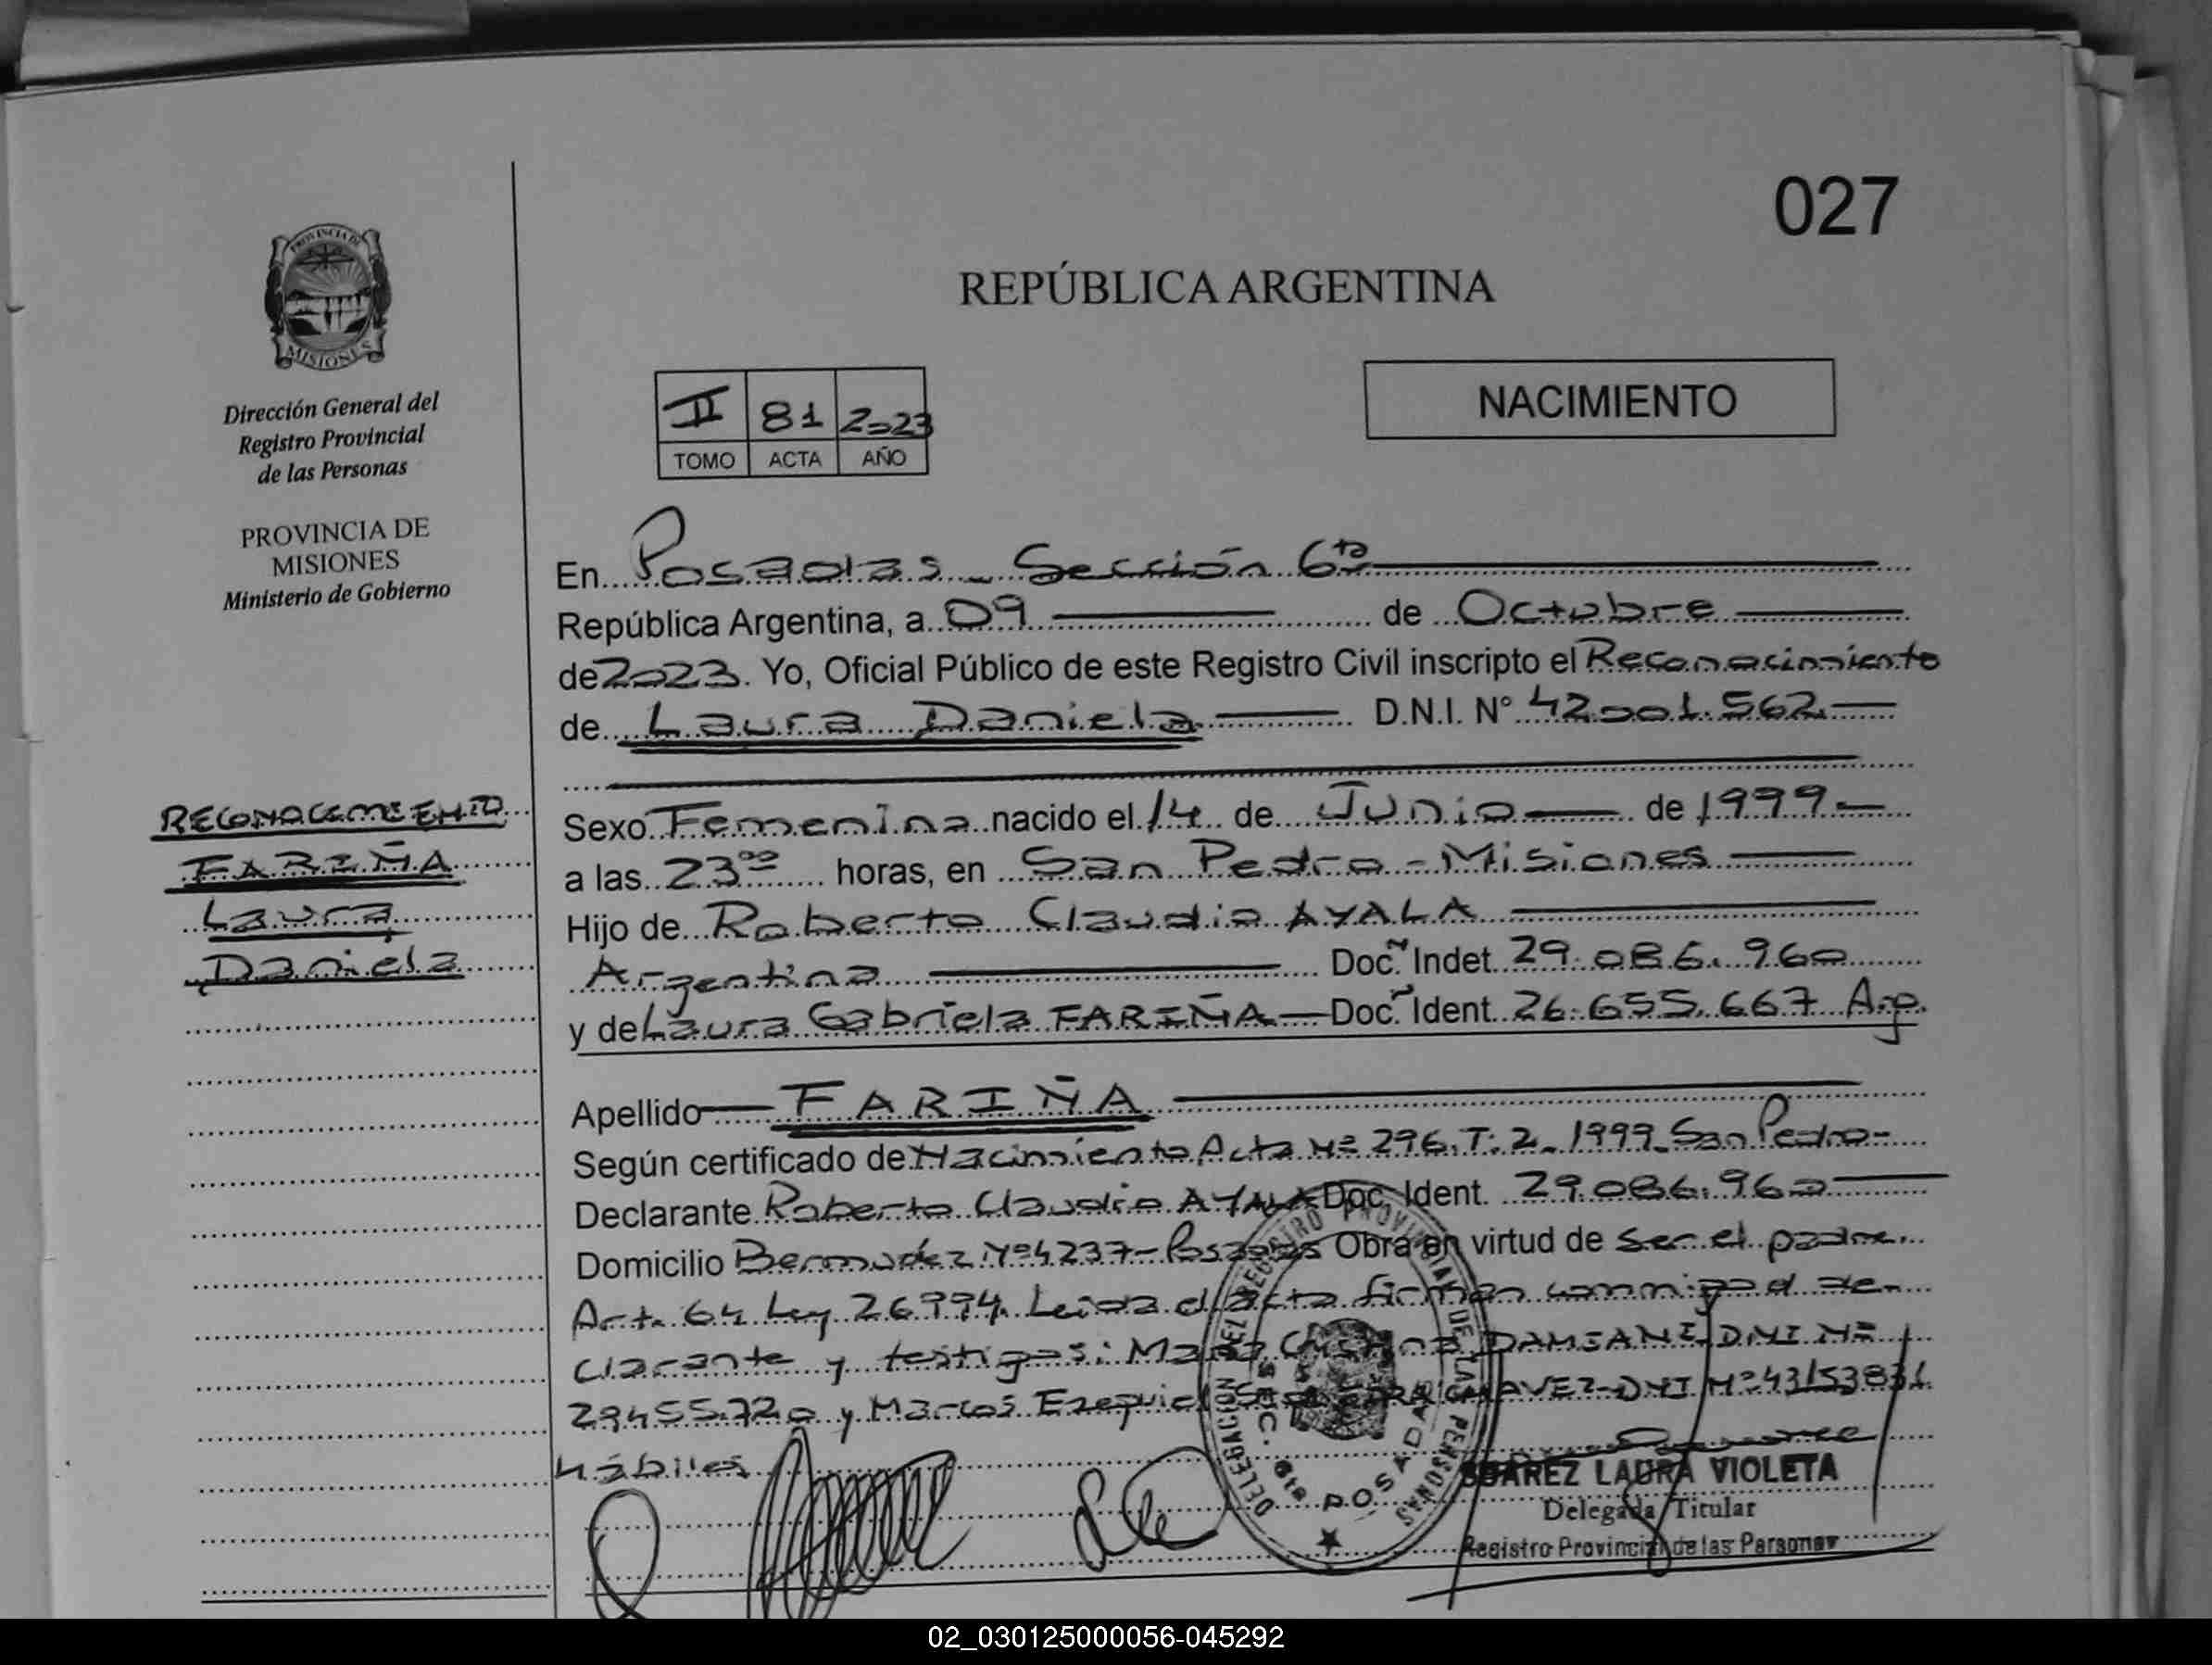 027
PROVINCIA DE
MISIONES
Dirección General del
Registro Provincial
de las Personas
PROVINCIA DE
MISIONES
Ministerio de Gobierno
REPÚBLICA ARGENTINA
II 81 2023
TOMO ACTA AÑO
NACIMIENTO
En Posadas - Sección 6ta
República Argentina, a 09 de Octubre
de 2023. Yo, Oficial Público de este Registro Civil inscripto el Reconocimiento
de Laura Daniela D.N.I. N° 42.001.562.
Sexo Femenina nacido el 14 de Junio de 1999
a las 23°° horas, en San Pedro - Misiones
Hijo de Roberto Claudio AYALA
Argentina Doc. Indet. 29.086.960
y de Laura Gabriela FARIÑA Doc. Ident. 26.655.667 Arg.
Apellido FARIÑA
Según certificado de Nacimiento Acta Nº 296. T. 2. 1999. San Pedro-
Declarante Roberto Claudio AYALA Doc. Ident. 29.086.960
Domicilio Bermudez Nº 4237- Posadas Obra en virtud de ser el padre.
Art. 64 Ley 26994. Leida el acta firman conmigo el de-
clarante y testigos: María DAMIANI DNI Nº
29455720 y Marcos Ezequiel CHAVEZ-DNI Nº 43153831
hábiles
RECONOCIMIENTO
FARIÑA
Laura
Daniela
DELEGACION DEL REGISTRO PROVINCIAL DE LAS PERSONAS
SEC. 6ta POSADAS
SUAREZ LAURA VIOLETA
Delegada Titular
Registro Provincial de las Personas
02_030125000056-045292